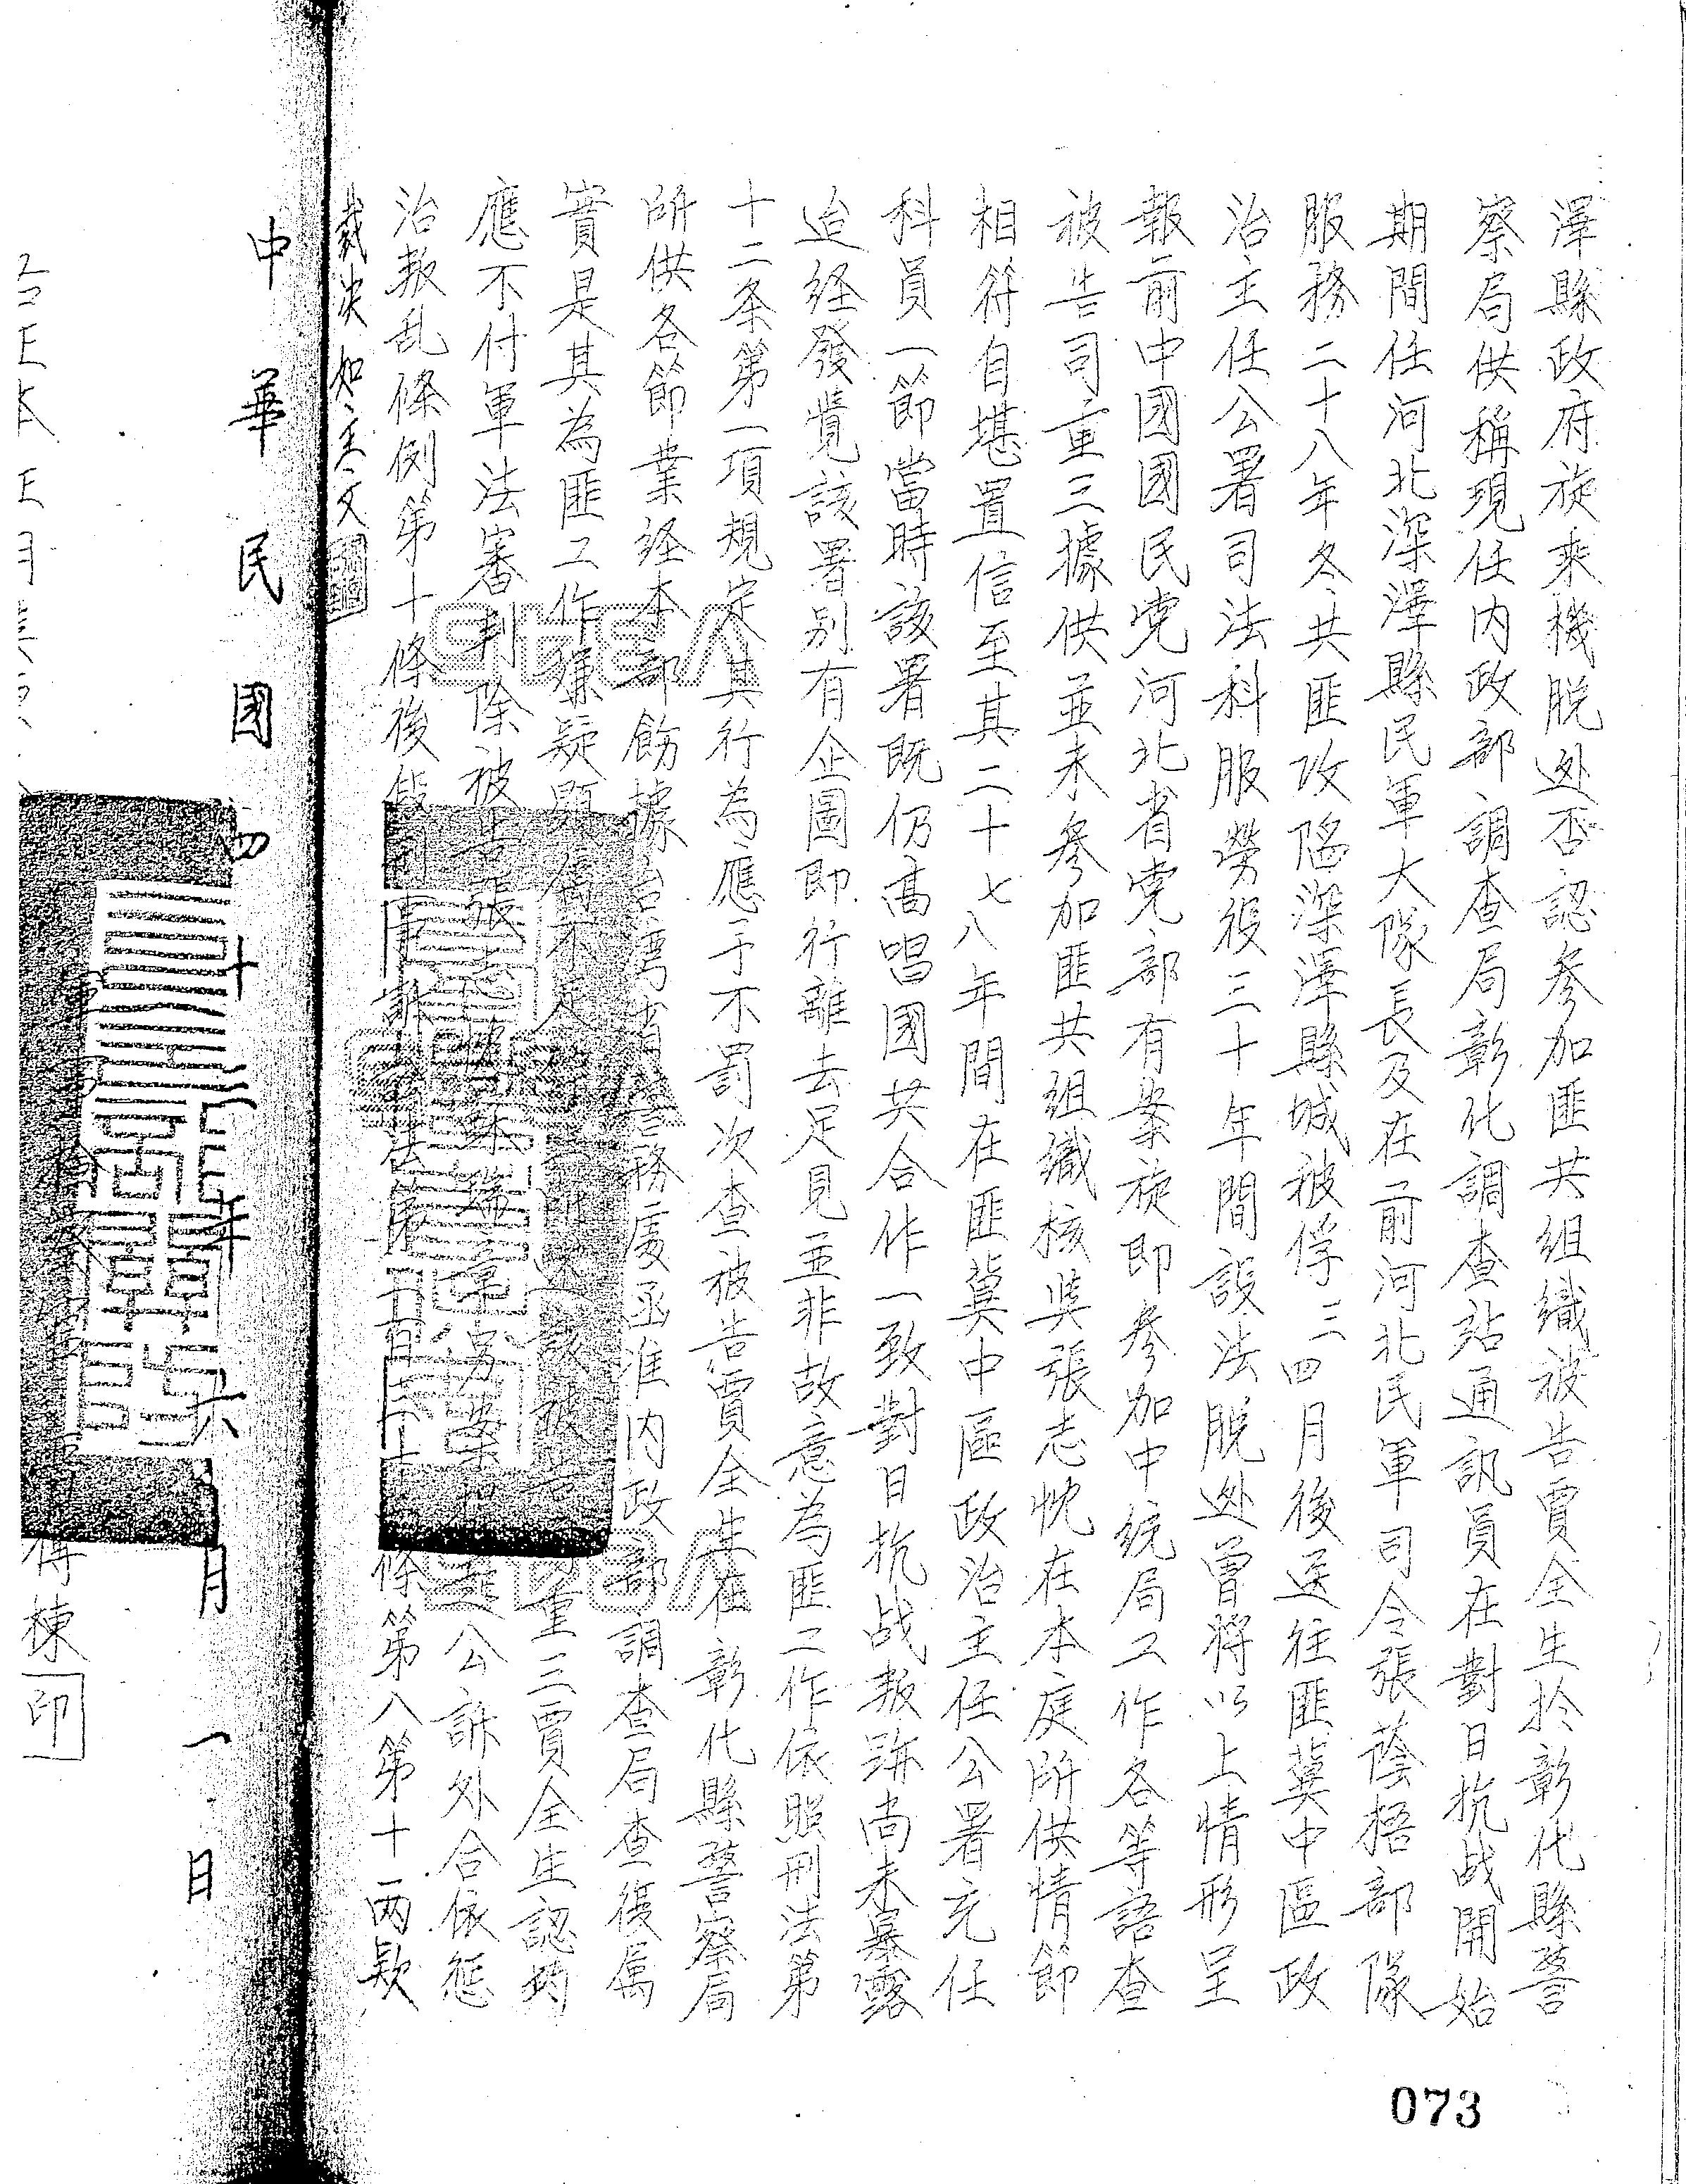 澤縣政府旋乘機脱逃否認参加匪共组織被告賈全生於彰化縣警
察局供稱現任内政部調查局彰化調查站通訊員在對日抗战開始
期間任河北深澤縣民軍大隊長及在前河北民軍司令張蔭梧部隊
服務二十八年冬共匪攻陷深澤縣城被俘三四月後送往匪冀中區政
治主任公署司法科服勞役三十年間設法脱逃曾將以上情形呈
報前中國國民党河北省党部有案旋即參加中統局工作各等語查
被告司重三據供並未參加匪共组織核與張志忱在本庭所供情節
相符自堪置信至其二十七八年間在匪冀中區政治主任公署充任
科員一節當時該署既仍高唱國共合作一致對日抗战叛跡尚未暴露
迨经發覺該署别有企圖即行離去足見並非故意為匪工作依照刑法第
十二条第一項規定其行為應予不罰次查被告賈全生在彰化縣警察局
所供各節業经本部飭據台湾省警務處函准内政部調查局查復属
實是其為匪工作嫌疑顯屬不足 該被告 重三賈全生認均
應不付軍法審判除被告張志忱 瑞章另案提起公訴外合依惩
治叛乱條例第十條後段刑事訴訟法第二百三十一條第八第十一两款
裁决如主文
中華民國四十三年六月一日
棟印
073